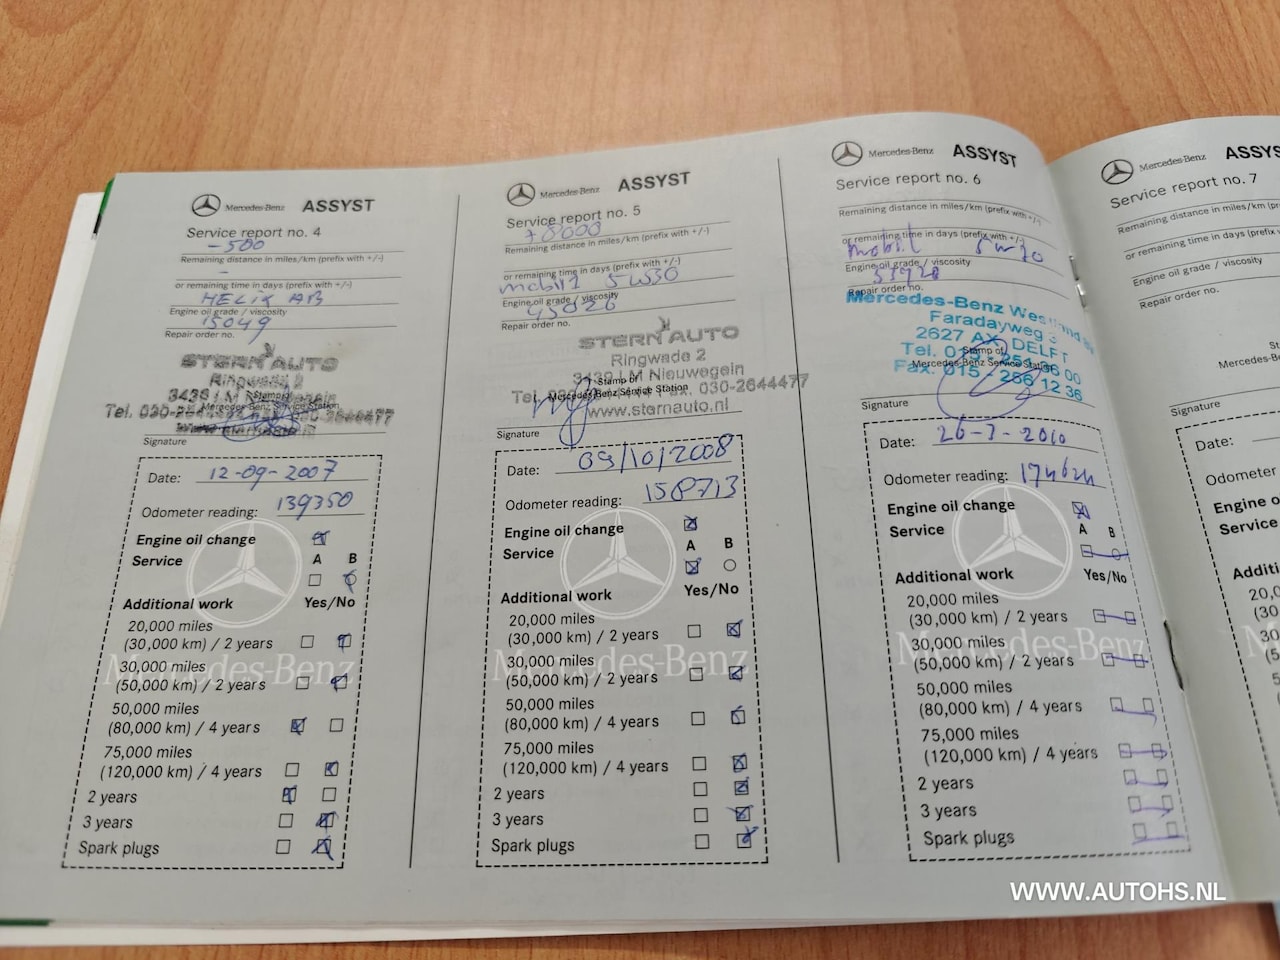 Mercedes-Benz ASSYST
Service report no. 4
-500
Remaining distance in miles/km (prefix with +/-)
–
or remaining time in days (prefix with +/-)
HELIX AB
Engine oil grade / viscosity
15049
Repair order no.
STERN AUTO
Ringwade 2
3439 LM
Stamp of
Mercedes-Benz Service Station
Tel. 030-2644477
Signature
Date: 12-09-2007
Odometer reading: 139350
Engine oil change
Service A B
Additional work Yes/No
20,000 miles
(30,000 km) / 2 years
30,000 miles
(50,000 km) / 2 years
50,000 miles
(80,000 km) / 4 years
75,000 miles
(120,000 km) / 4 years
2 years
3 years
Spark plugs
Mercedes-Benz
Mercedes-Benz ASSYST
Service report no. 5
+8000
Remaining distance in miles/km (prefix with +/-)
or remaining time in days (prefix with +/-)
mobil 1 5W30
Engine oil grade / viscosity
45026
Repair order no.
STERN AUTO
Ringwade 2
3439 LM Nieuwegein
Stamp of
Mercedes-Benz Service Station
Tel. Fax. 030-2644477
www.sternauto.nl
Signature
Date: 09/10/2008
Odometer reading: 158713
Engine oil change
Service A B
Additional work Yes/No
20,000 miles
(30,000 km) / 2 years
30,000 miles
(50,000 km) / 2 years
50,000 miles
(80,000 km) / 4 years
75,000 miles
(120,000 km) / 4 years
2 years
3 years
Spark plugs
Mercedes-Benz
Mercedes-Benz ASSYST
Service report no. 6
Remaining distance in miles/km (prefix with +/-)
or remaining time in days (prefix with +/-)
mobil 5w30
Engine oil grade / viscosity
Repair order no.
Mercedes-Benz Westland
Faradayweg
2627 AX DELFT
Stamp of
Mercedes-Benz Service Station
Tel. 015 -
Fax. 015 - 256 12 36
Signature
Date: 26-3-2010
Odometer reading:
Engine oil change
Service A B
Additional work Yes/No
20,000 miles
(30,000 km) / 2 years
30,000 miles
(50,000 km) / 2 years
50,000 miles
(80,000 km) / 4 years
75,000 miles
(120,000 km) / 4 years
2 years
3 years
Spark plugs
Mercedes-Benz
Mercedes-Benz ASSYS
Service report no. 7
Remaining distance in miles/km (prefix with +/-)
or remaining time in days (prefix with
Engine oil grade / viscosity
Repair order no.
Mercedes-B
Signature
Date:
Odometer
Engine o
Service
Additi
20,0
WWW.AUTOHS.NL